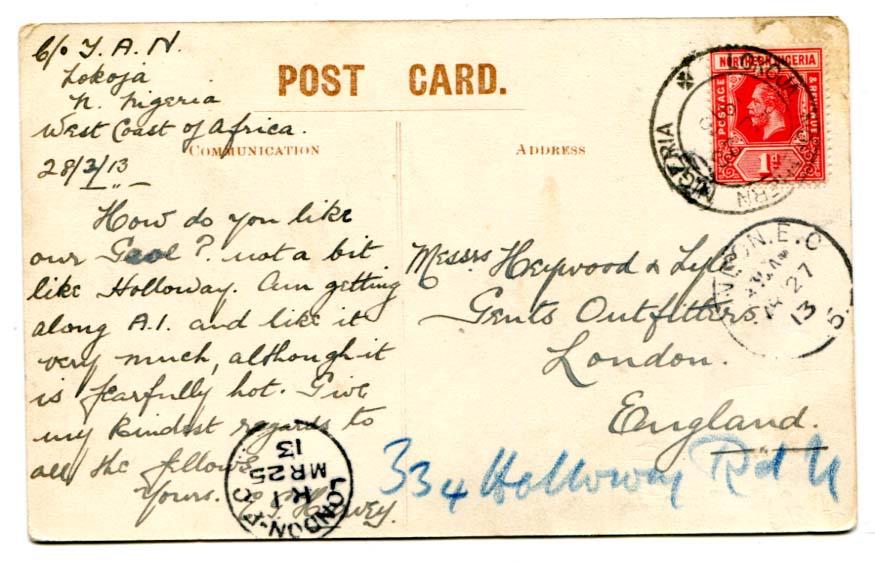 POST CARD.
COMMUNICATION
ADDRESS
c/o T. A. N.
Lokoja
N. Nigeria
West Coast of Africa.
28/2/13
How do you like
our Gaol? not a bit
like Holloway. Am getting
along A.1. and like it
very much, although it
is fearfully hot. Give
my kindest regards to
all the fellows
Yours.
Harvey.
Messrs Heywood & Lyle
Gents Outfitters
London.
England.
334 Holloway Rd N
NORTHERN NIGERIA
POSTAGE
& REVENUE
1d
LOKOJA
NORTHERN NIGERIA
LONDON. E.C
27
13
5.
LONDON
KI
MR 25
13